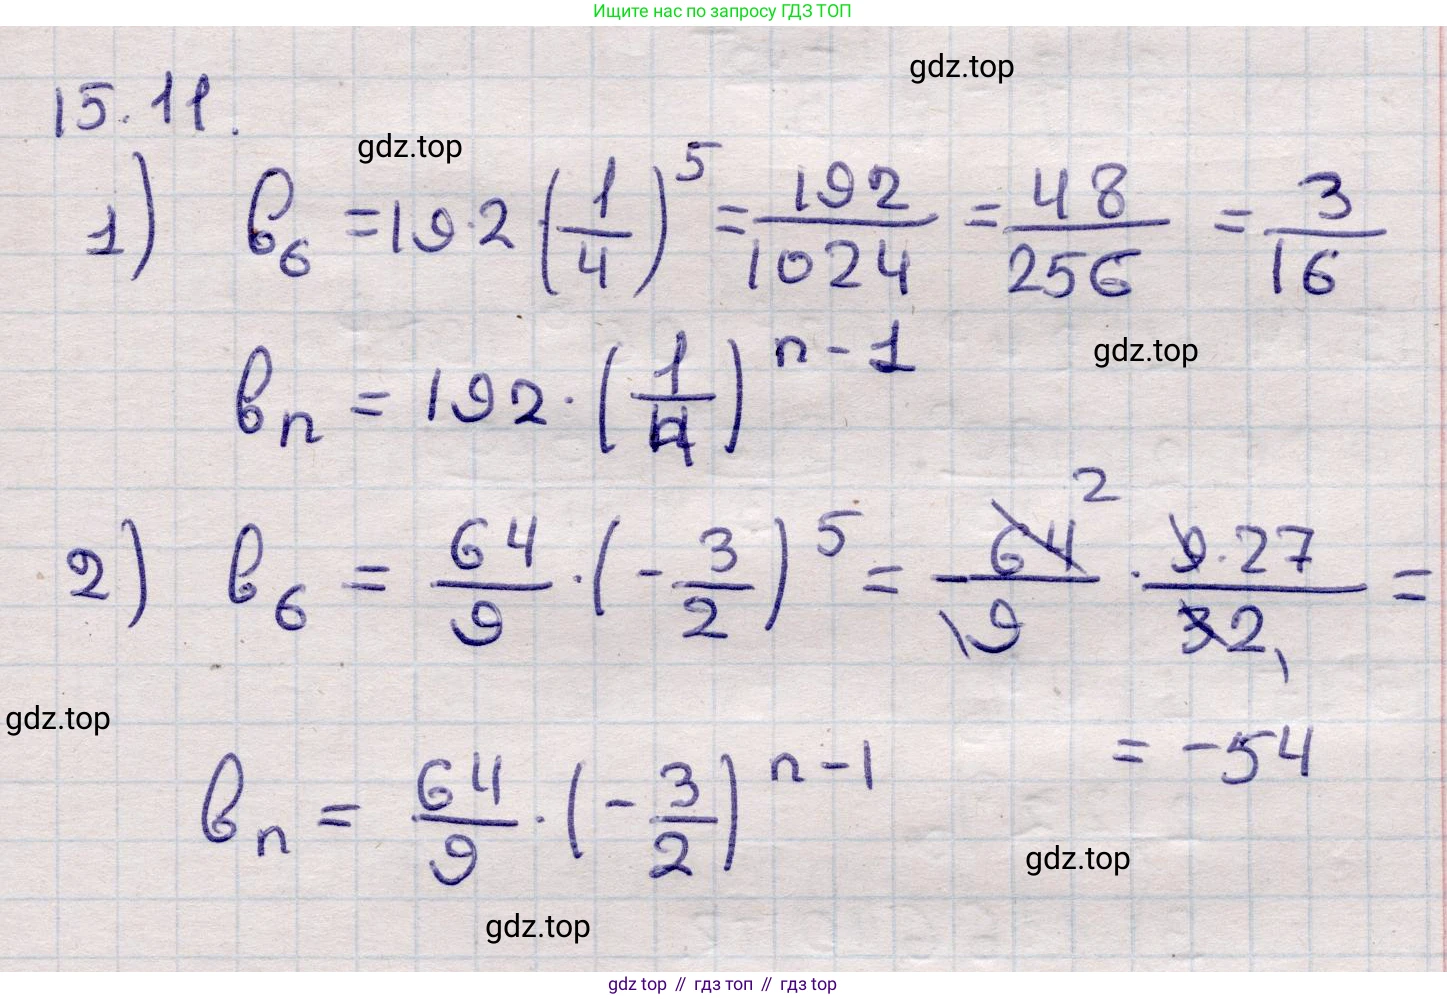 Ищите нас по запросу ГДЗ ТОП
gdz.top
15.11.
gdz.top
1) b₆ = 192 · (1/4)⁵ = 192/1024 = 48/256 = 3/16
gdz.top
bₙ = 192 · (1/4)ⁿ⁻¹
2) b₆ = 64/9 · (-3/2)⁵ = -64/9 · 9·27/32 =
2
1
gdz.top
= -54
bₙ = 64/9 · (-3/2)ⁿ⁻¹
gdz.top
gdz.top
gdz top // гдз топ // гдз top